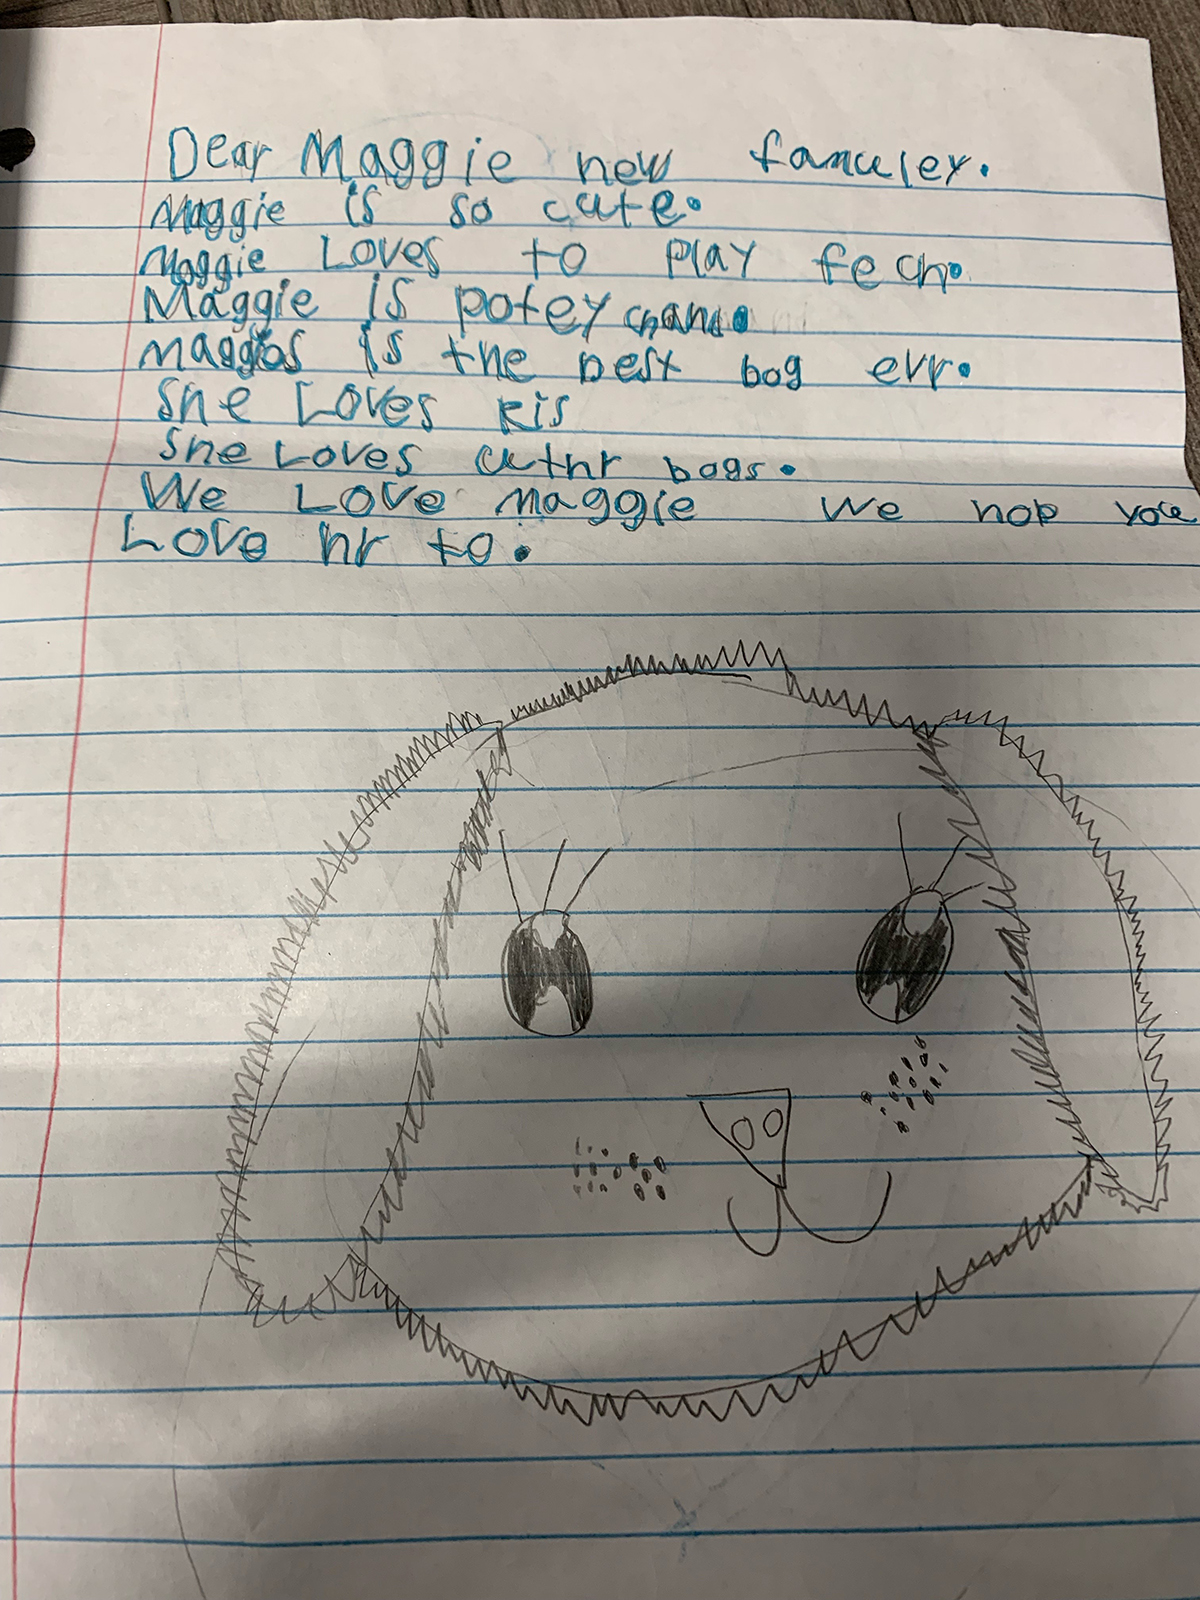 Dear Maggie new famuley.
Maggie is so cute.
Maggie Loves to play fech.
Maggie is potey chand.
maggios is the best bog evr.
She Loves kis
She Loves uthr bogs.
We Love maggie we hop you
Love hr to.